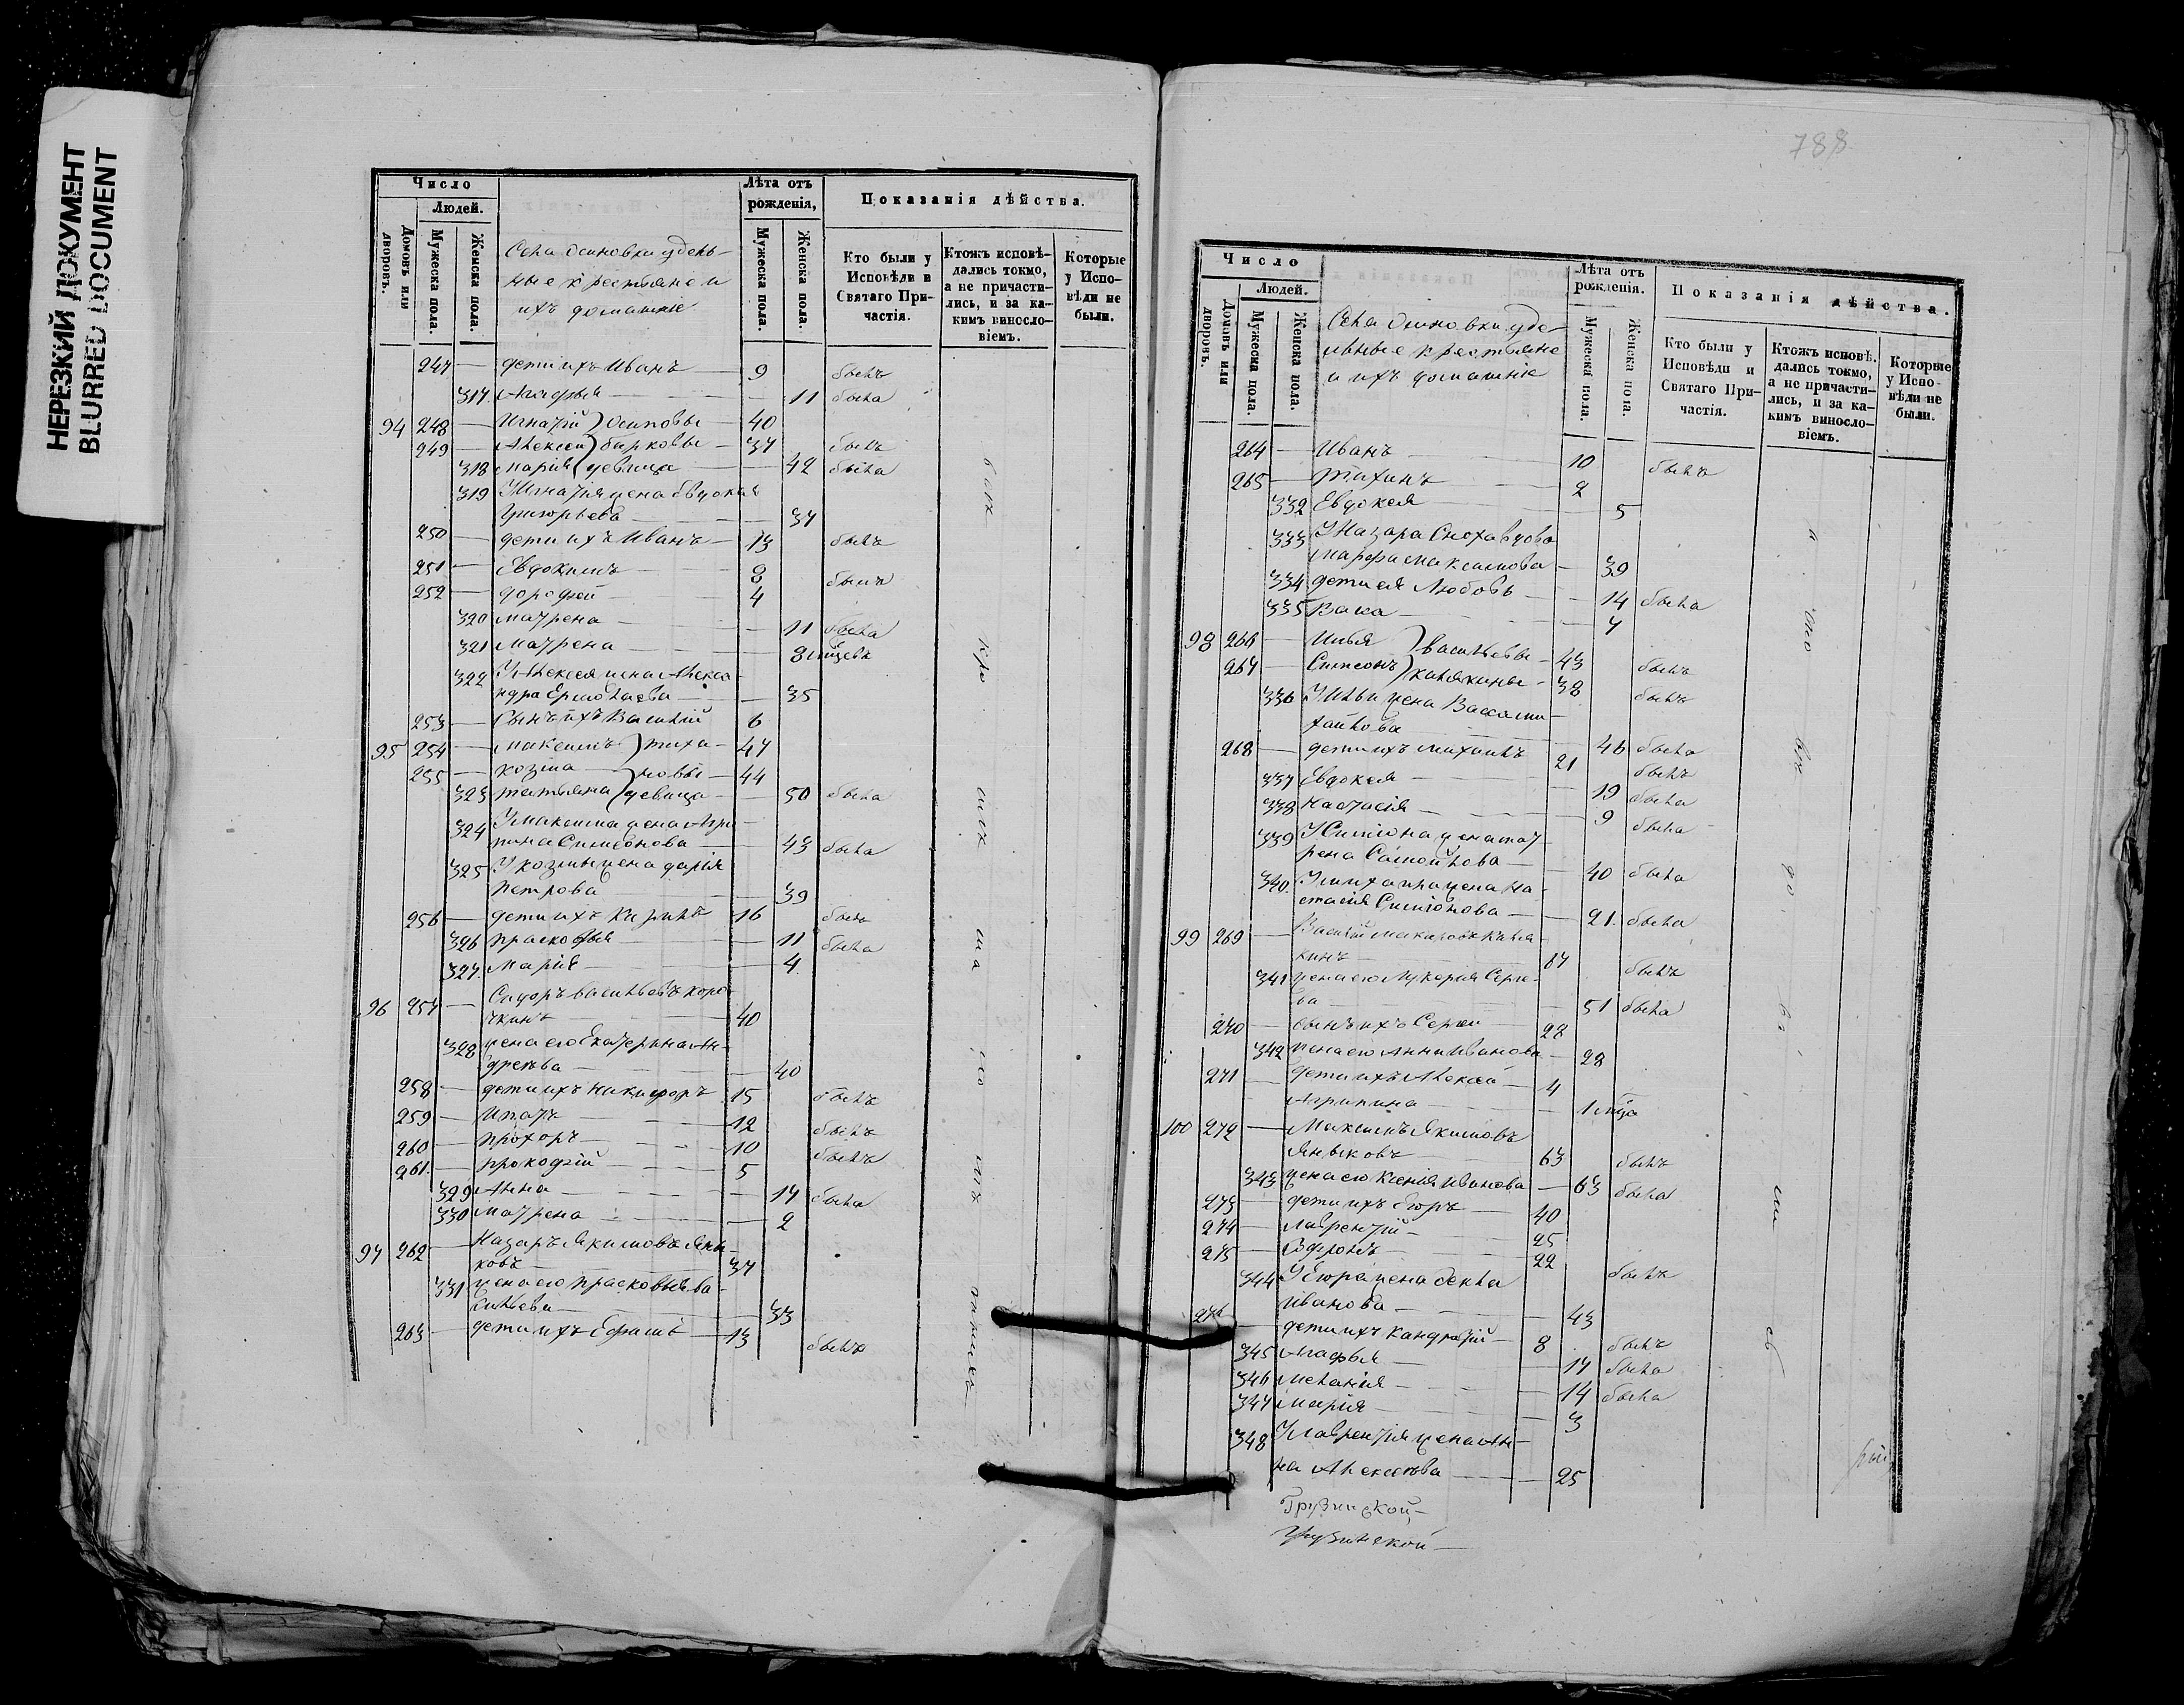 НЕРЕЗКИЙ ДОКУМЕНТ
BLURRED DOCUMENT
Число
Людей.
Домовъ или дворовъ.
Мужеска пола.
Женска пола.
Села Осиновки удель-
ные крестьяне и
ихъ домашніе
Лѣта отъ рожденія,
Мужеска пола.
Женска пола.
Показанія дѣйства.
Кто были у Исповѣди и Святаго Причастія.
Ктожъ исповѣдались токмо, а не причастились, и за какимъ винословіемъ.
Которые у Исповѣди не были.
247 — дети ихъ Иванъ — 9 былъ
317 Агафья — 11 была
94 248 — Игнатій } Осиповы — 40
249 — Алексей } — 37 былъ
318 Марія девица — 42 была
319 У Игнатія жена Евдокея
Григорьева — 37
250 — дети ихъ Иванъ — 13 былъ
251 — Евдокимъ — 8 былъ
252 — Дорофей — 4
320 Матрена — 11 была
321 Матрена — 8
322 У Алексея жена Алекса-
ндра Ермолаева — 35
253 — Сынъ ихъ Василій 6
95 254 — Максимъ } Тиха- 47
255 — Козма } новы — 44
323 Татьяна девица — 50 была
324 У Максима жена Агри-
пина Симеонова — 43 была
325 У Козмы жена Дарія
Петрова — 39
256 — дети ихъ 16 былъ
326 Прасковья — 11 была
327 Марія — 4
96 257 — Сидоръ Васильевъ Коро-
чкинъ — 40
328 жена его Екатерина Ан-
дреева — 40
258 — дети ихъ Никифоръ 15 былъ
259 — Ипатъ — 12 былъ
260 — Прохоръ — 10 былъ
261 — Прокофій — 5
329 Анна — 17 была
330 Матрена — 2
97 262 — Назаръ Якимовъ Яны-
ковъ — 37
331 жена его Прасковья Ва-
сильева — 33
263 — дети ихъ Ефимъ — 13 былъ
788
Число
Людей.
Домовъ или дворовъ.
Мужеска пола.
Женска пола.
Села Осиновки уде-
льные крестьяне
и ихъ домашніе
Лѣта отъ рожденія.
Мужеска пола.
Женска пола.
Показанія дѣйства.
Кто были у Исповѣди и Святаго Причастія.
Ктожъ исповѣдались токмо, а не причастились, и за какимъ винословіемъ.
Которые у Исповѣди не были.
264 — Иванъ — 10 былъ
265 — Тихинъ — 2
332 Евдокея — 5
333 У Назара Сноха вдова
Марфа Максимова — 39
334 дети ея Любовь — 14 была
335 Васа — 7
98 266 — Илья } Васильевы — 43 былъ
267 — Симеонъ } Калякины — 38 былъ
336 У Ильи жена Васса Ми-
хайлова — 46 была
268 — дети ихъ Михаилъ 21 былъ
337 Евдокея — 19 была
338 Настасія — 9 была
339 У Симіона жена Мат-
рена Самойлова — 40 была
340 У Михаила жена На-
стасія Симіонова — 21 была
99 269 — Василій Макаровъ Каля-
кинъ — 67 былъ
341 жена его Лукерия Серге-
ва — 51 была
270 — сынъ ихъ Сергеи — 28
342 жена его Анна Иванова — 28
271 — дети ихъ Алексей — 4
Агрипина — 1
100 272 — Максимъ Якимовъ
Яныковъ — 63 былъ
343 жена его Ксенія Иванова — 63 была
273 — дети ихъ Егоръ — 40
274 — Лаврентій — 25
275 — 22 былъ
344 У Егора жена Фекла
Иванова — 43
276 — дети ихъ Кандратій — 8 былъ
345 Агафья — 17 была
346 Меланія — 14 была
347 Марія — 3
348 У Лаврентія жена Ан-
на Алексеева — 25
Грузинской —
Грузинской —